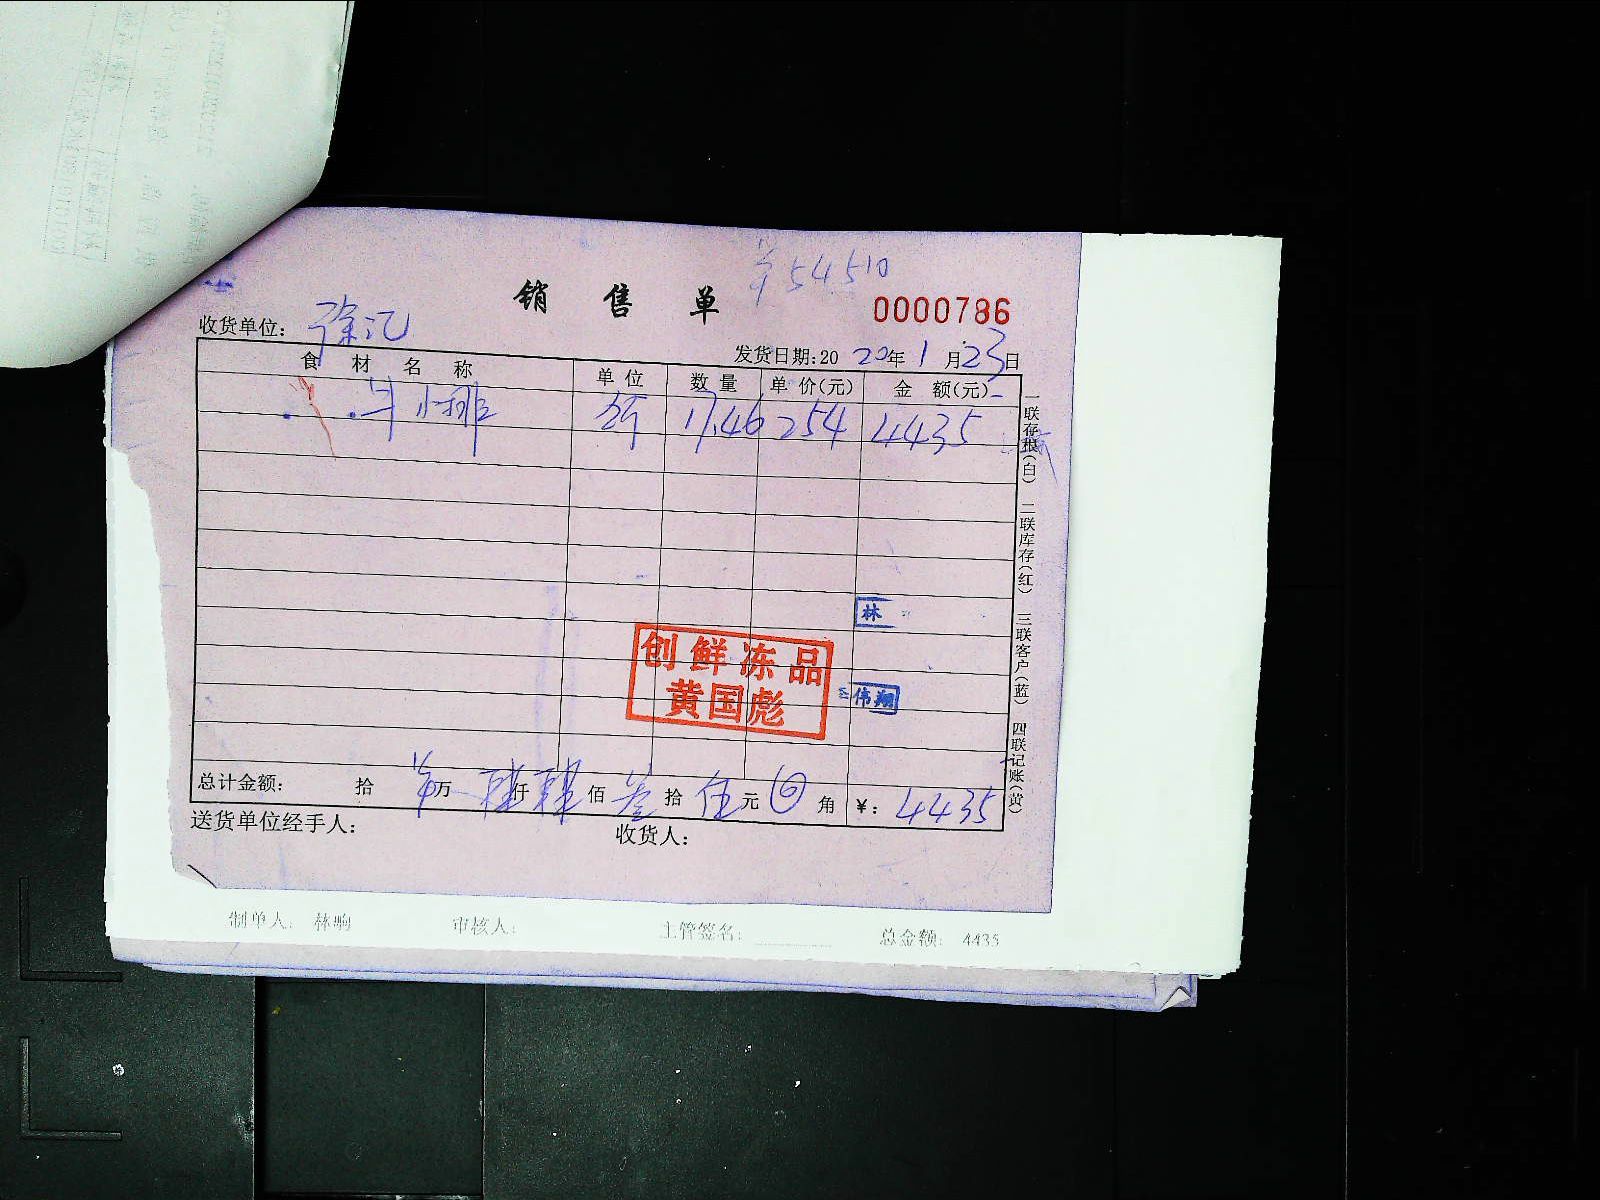 ¥54510
销售单
0000786
收货单位：徐汇
发货日期：2020年1月23日
食材名称 单位 数量 单价(元) 金额(元)
牛小排 斤 17.46 254 4435
一联存根(白) 二联库存(红) 三联客户(蓝) 四联记账(黄)
林
创鲜冻品
黄国彪
伟翔
总计金额： 拾 万 肆仟肆佰叁拾伍元 角 ¥：4435
送货单位经手人： 收货人：
制单人：林驹 审核人： 主管签名： 总金额：4435